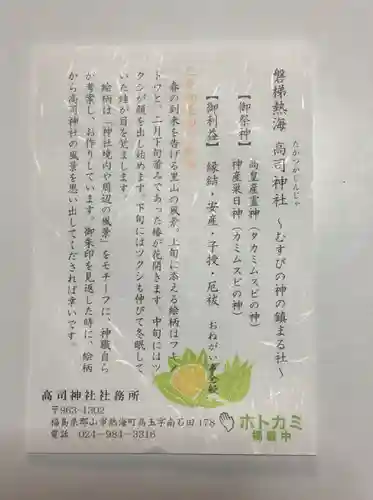 磐梯熱海 高司神社 〜むすびの神の鎮まる社〜
たかつかじんじゃ
【御祭神】 高皇産霊神（タカミムスビの神）
神産巣日神（カミムスビの神）
【御利益】 縁結・安産・子授・厄祓 おねがい事全般
春の到来を告げる里山の風景。上旬に添える絵柄はフキノ
トウと、二月下旬蕾みであった椿が花開きます。中旬にはツ
クシが顔を出し始めます。下旬にはツクシも伸びて冬眠して
いた蛙が目を覚まします。
絵柄は「神社境内や周辺の風景」をモチーフに、神職自ら
が考案し、お作りしています。御朱印を見返した時に、絵柄
から高司神社の風景を思い出してくだされば幸いです。
高司神社社務所
〒963-1302
福島県郡山市熱海町高玉字南石田178
電話 024-984-3316
ホトカミ
掲載中